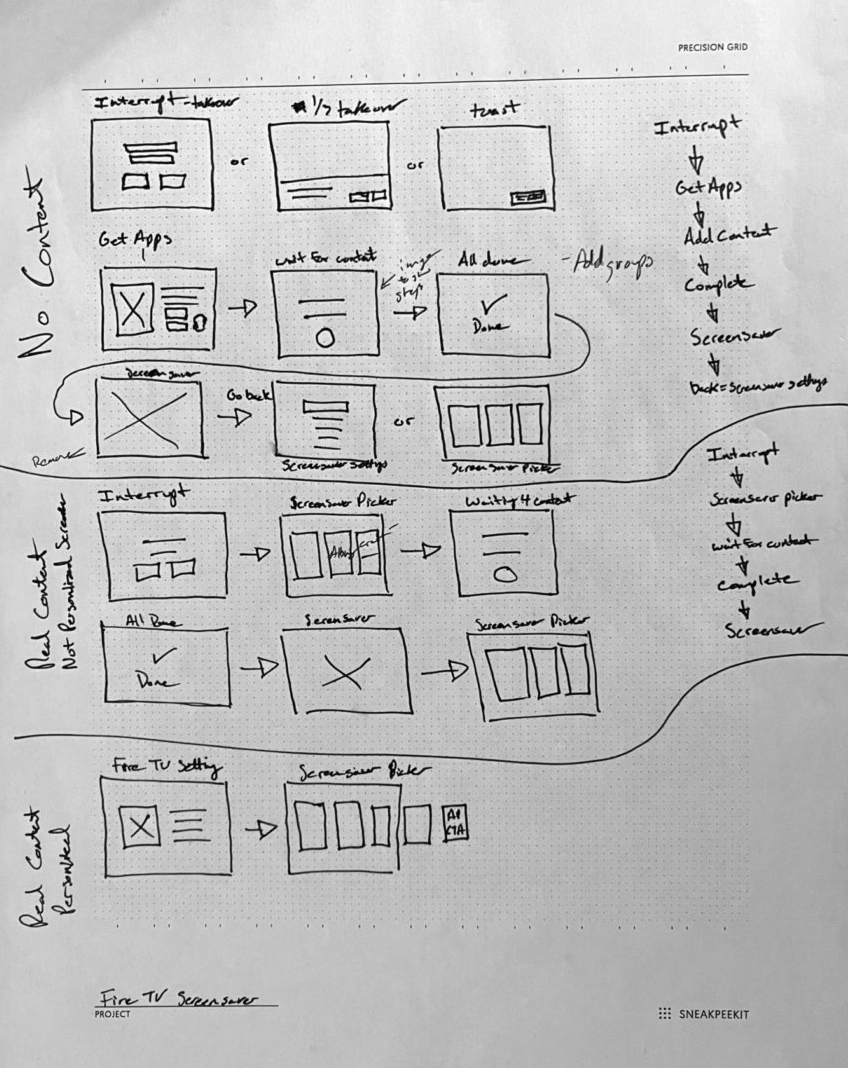 PRECISION GRID
No Content
Interrupt-takeover
or
1/3 takeover
or
toast
Get Apps
wait For content
image
to
steps
All done
Done
- Add groups
Screensaver
Go back
Screensaver settings
or
Screensaver Picker
Remove
Interrupt
Get Apps
Add Content
Complete
Screensaver
back = screensaver settings
Real Content
Not Personalized Screensaver
Interrupt
Screensaver Picker
Waiting 4 content
All Done
Done
Screensaver
Screensaver Picker
Interrupt
Screensaver picker
wait For content
Complete
Screensaver
Real Content
Fire TV Setting
Screensaver Picker
CTA
Fire TV Screensaver
PROJECT
SNEAKPEEKIT